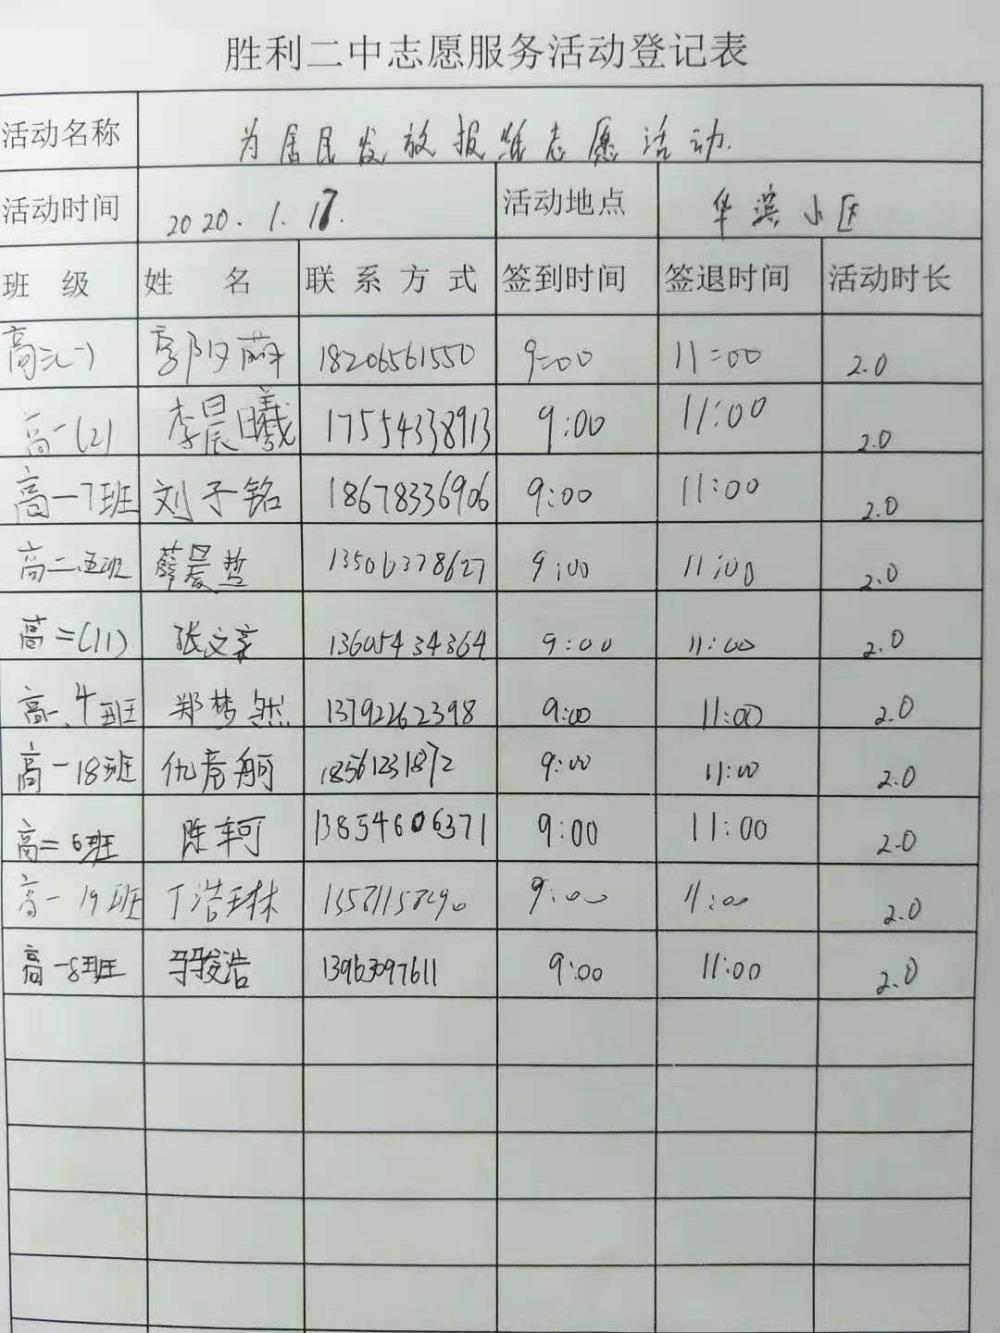 胜利二中志愿服务活动登记表
活动名称 为居民发放报纸志愿活动.
活动时间 2020.1.17. 活动地点 华滨小区
班 级 姓 名 联系方式 签到时间 签退时间 活动时长
18206561550 9:00 11:00 2.0
高一(2) 李晨曦 17554338913 9:00 11:00 2.0
高一7班 刘子铭 18678336906 9:00 11:00 2.0
高二.五班 薛晨哲 13506378627 9:00 11:00 2.0
高二(11) 13605434364 9:00 11:00 2.0
高一.4班 郑梦然 13792262398 9:00 11:00 2.0
高一18班 18561231872 9:00 11:00 2.0
高二6班 陈轲 13854606371 9:00 11:00 2.0
高一19班 丁浩琳 9:00 11:00 2.0
高一8班 13963097611 9:00 11:00 2.0